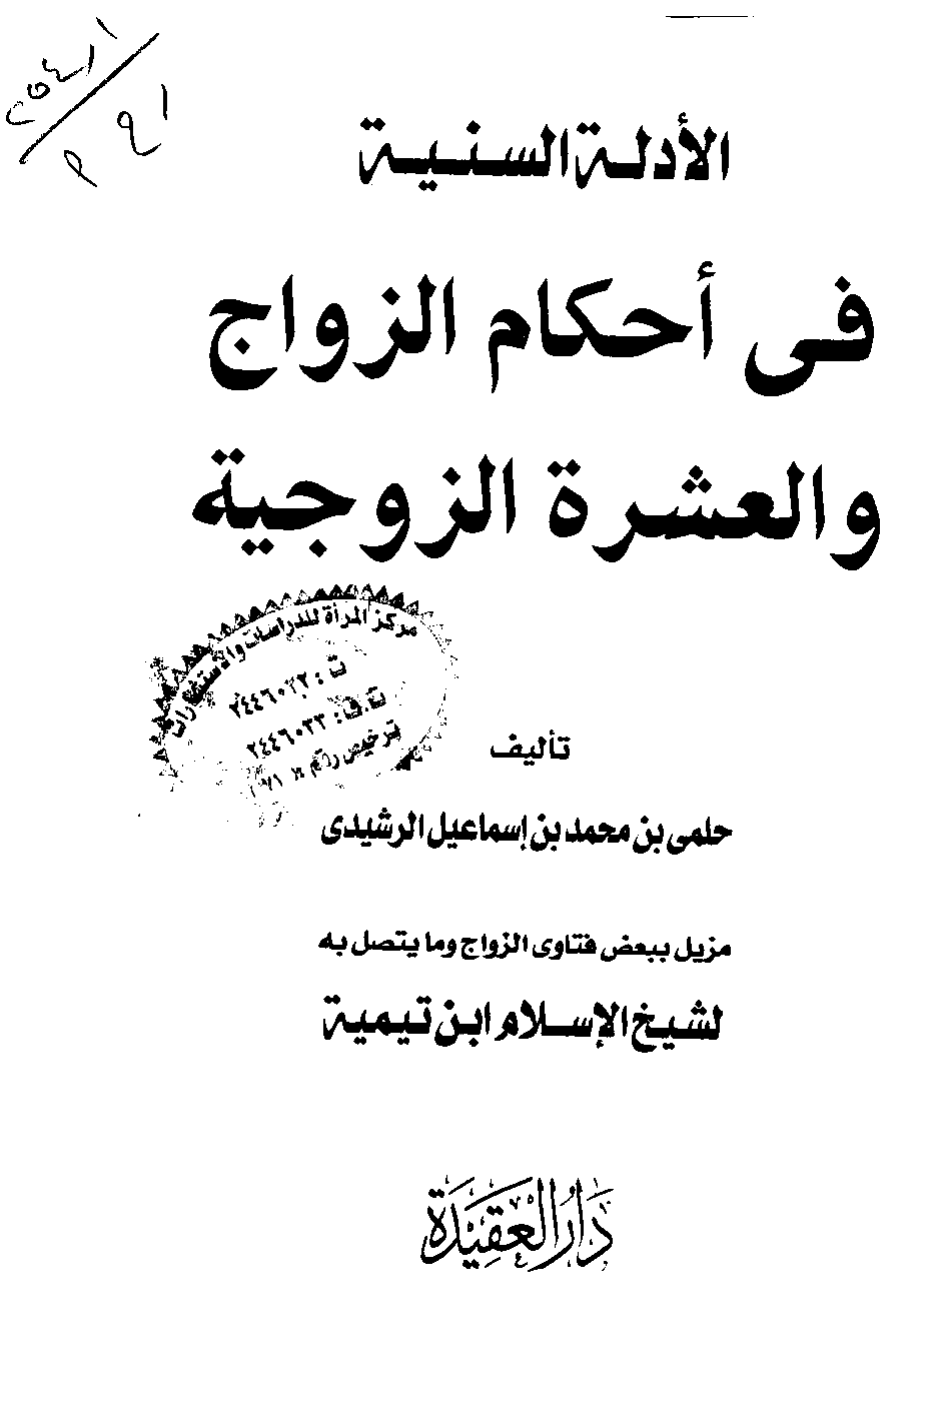 الأدلة السنية
فى أحكام الزواج
والعشرة الزوجية
مركز المرأة للدراسات والاستشارات
ت : ٢٤٤٦٠٢٢
ت.ف: ٢٤٤٦٠٢٣
ترخيص رقم
تأليف
حلمى بن محمد بن إسماعيل الرشيدى
مزيل ببعض فتاوى الزواج وما يتصل به
لشيخ الإسلام ابن تيمية
دار العقيدة